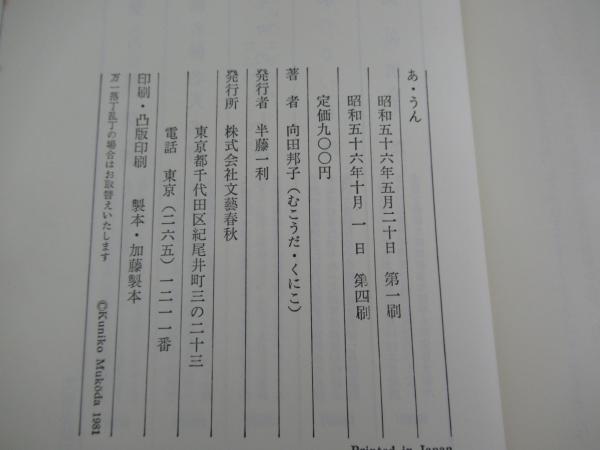 あ・うん
昭和五十六年五月二十日　第一刷
昭和五十六年十月　一日　第四刷
定価九〇〇円
著　者　向田邦子（むこうだ・くにこ）
発行者　半藤一利
発行所　株式会社文藝春秋
東京都千代田区紀尾井町三の二十三
電話　東京（二六五）一二一一番
印刷・凸版印刷　製本・加藤製本
万一落丁乱丁の場合はお取替えいたします
©Kuniko Mukōda 1981
Printed in Japan